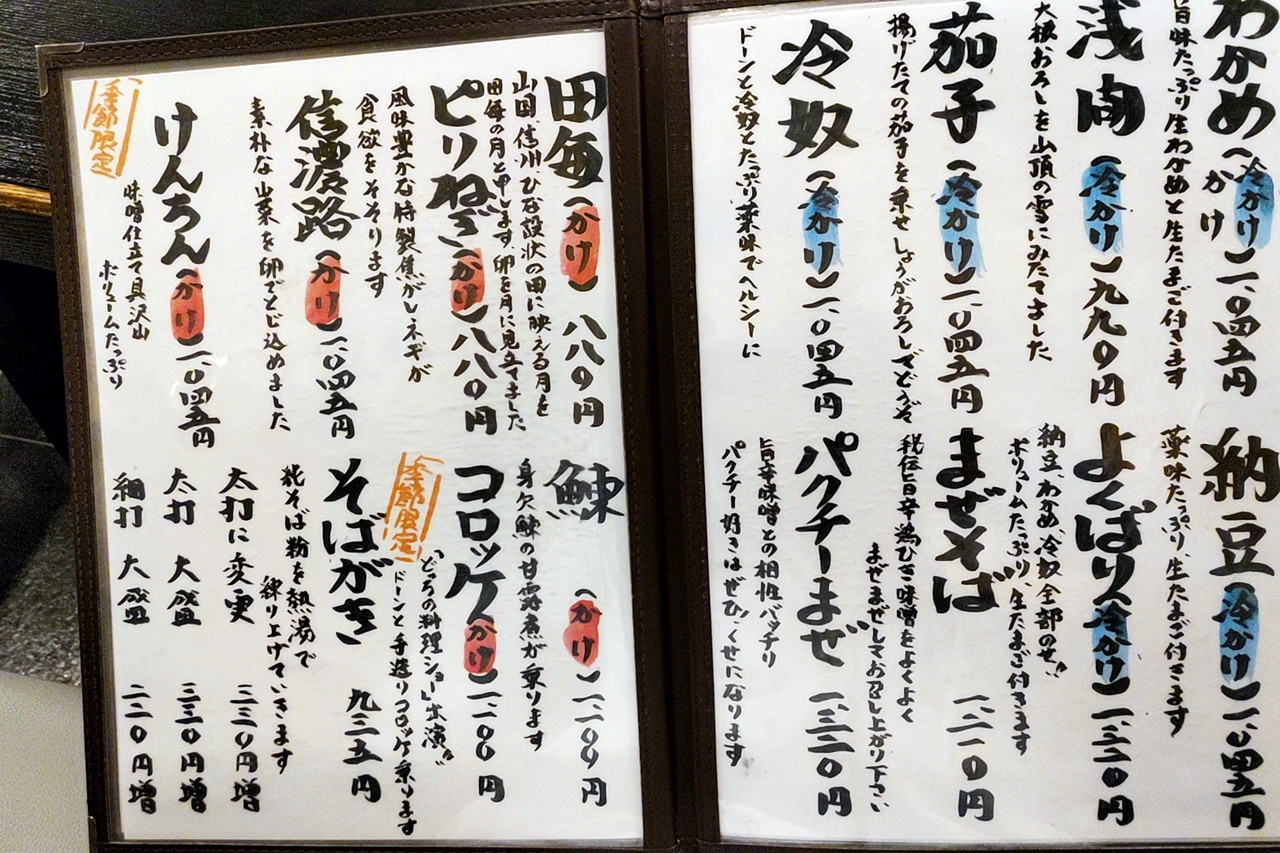 わかめ（冷かけ かけ）一、〇四五円
旨味たっぷり生わかめと生たまご付きます
浅間（冷かけ）九九〇円
大根おろしを山頂の雪にみたてました
茄子（冷かけ）一、〇四五円
揚げたての茄子を乗せしょうがおろしでどうぞ
冷奴（冷かけ）一、〇四五円
ドーンと冷奴とたっぷり薬味でヘルシーに
納豆（冷かけ）一、〇四五円
薬味たっぷり、生たまご付きます
よくばり（冷かけ）一、三二〇円
納豆、わかめ、冷奴全部のせ!!
ボリュームたっぷり、生たまご付きます
まぜそば 一、二一〇円
秘伝旨辛鶏ひき味噌をよくよく
まぜまぜしてお召し上がり下さい
パクチーまぜ 一、三二〇円
旨辛味噌との相性バッチリ
パクチー好きはぜひ、くせになります
田毎（かけ）八八〇円
山国、信州、ひな段状の田に映える月を
田毎の月と申します、卵を月に見立てました
ピリねぎ（かけ）八八〇円
風味豊かな特製焦がしネギが
食欲をそそります
信濃路（かけ）一、〇四五円
素朴な山菜を卵でとじ込めました
けんちん（かけ）一、〇四五円
季節限定
味噌仕立て具沢山
ボリュームたっぷり
鰊（かけ）一、二〇〇円
身欠鰊の甘露煮が乗ります
コロッケ（かけ）一、一〇〇円
季節限定
どっちの料理ショー出演!!
ドーンと手造りコロッケ乗ります
そばがき 九三五円
純そば粉を熱湯で
練り上げていきます
太打に変更 三三〇円増
太打 大盛 三三〇円増
細打 大盛 二二〇円増